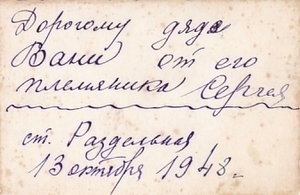 Дорогому дяде
Вани от его
племяника Сергея
ст. Раздельная
13 октября 1948.